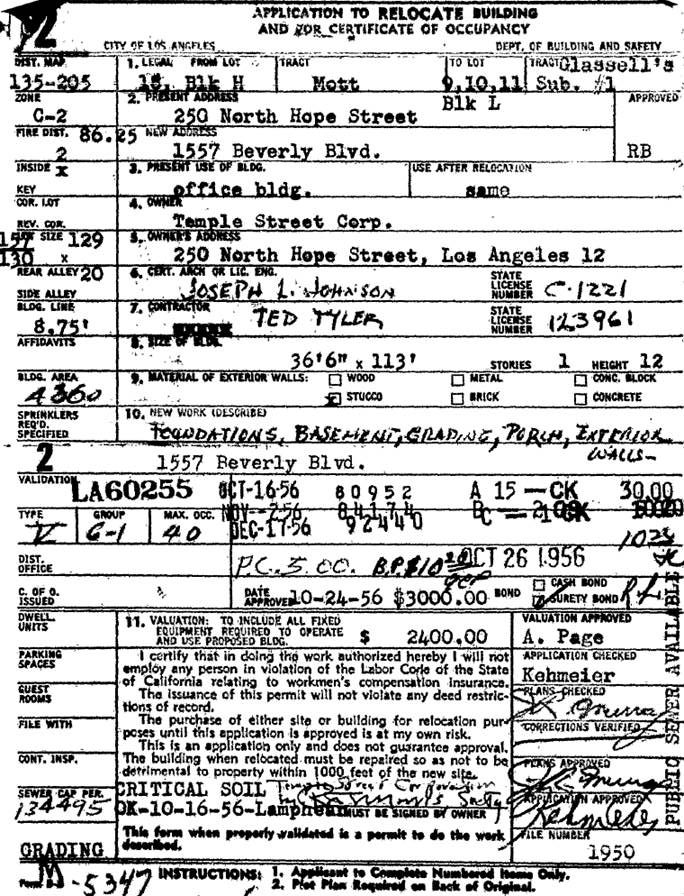 2
APPLICATION TO RELOCATE BUILDING
AND FOR CERTIFICATE OF OCCUPANCY
CITY OF LOS ANGELES
DEPT. OF BUILDING AND SAFETY
DIST. MAP
135-205
1. LEGAL FROM LOT TRACT TO LOT TRACT Glassell's
18, Blk H Mott 9,10,11 Sub. #1
Blk L
ZONE
C-2
2. PRESENT ADDRESS
250 North Hope Street
APPROVED
FIRE DIST. 86.25
2
NEW ADDRESS
1557 Beverly Blvd.
RB
INSIDE X
3. PRESENT USE OF BLDG. USE AFTER RELOCATION
office bldg. same
KEY
COR. LOT
4. OWNER
Temple Street Corp.
REV. COR.
157 SIZE 129
130 x
5. OWNER'S ADDRESS
250 North Hope Street, Los Angeles 12
REAR ALLEY 20
SIDE ALLEY
6. CERT. ARCH OR LIC. ENG. STATE LICENSE NUMBER
JOSEPH L. JOHNSON C-1221
BLDG. LINE
8.75'
7. CONTRACTOR STATE LICENSE NUMBER
TED TYLER 123961
AFFIDAVITS
8. SIZE OF BLDG.
36'6" x 113' STORIES 1 HEIGHT 12
BLDG. AREA
4360
9. MATERIAL OF EXTERIOR WALLS: WOOD METAL CONC. BLOCK
STUCCO BRICK CONCRETE
SPRINKLERS
REQ'D.
SPECIFIED
10. NEW WORK (DESCRIBE)
FOUNDATIONS, BASEMENT, GRADING, PORCH, EXTERIOR
WALLS-
2
1557 Beverly Blvd.
VALIDATION
LA60255 OCT-16-56 80952 A 15 —CK 30.00
NOV--2-56 84174
DEC-17-56 92440
TYPE GROUP MAX. OCC.
V G-1 40
DIST.
OFFICE
P.C. 5.00. B.P. OCT 26 1956
C. OF O.
ISSUED
DATE
APPROVED 10-24-56 $3000.00 BOND
CASH BOND
SURETY BOND
DWELL.
UNITS
11. VALUATION: TO INCLUDE ALL FIXED
EQUIPMENT REQUIRED TO OPERATE
AND USE PROPOSED BLDG. $ 2400.00
VALUATION APPROVED
A. Page
PARKING
SPACES
I certify that in doing the work authorized hereby I will not
employ any person in violation of the Labor Code of the State
of California relating to workmen's compensation insurance.
APPLICATION CHECKED
Kehmeier
GUEST
ROOMS
The issuance of this permit will not violate any deed restric-
tions of record.
PLANS CHECKED
FILE WITH
The purchase of either site or building for relocation pur-
poses until this application is approved is at my own risk.
This is an application only and does not guarantee approval.
CORRECTIONS VERIFIED
CONT. INSP.
The building when relocated must be repaired so as not to be
detrimental to property within 1000 feet of the new site.
PLANS APPROVED
SEWER CAP PER.
134495
CRITICAL SOIL Temple Street Corporation
OK-10-16-56-Lamphear MUST BE SIGNED BY OWNER
APPLICATION APPROVED
Kehmeier
This form when properly validated is a permit to do the work
described.
FILE NUMBER
1950
GRADING
PUBLIC SEWER AVAILABLE
M-5347
INSTRUCTIONS: 1. Applicant to Complete Numbered Items Only.
2. Plot Plan Required on Back of Original.